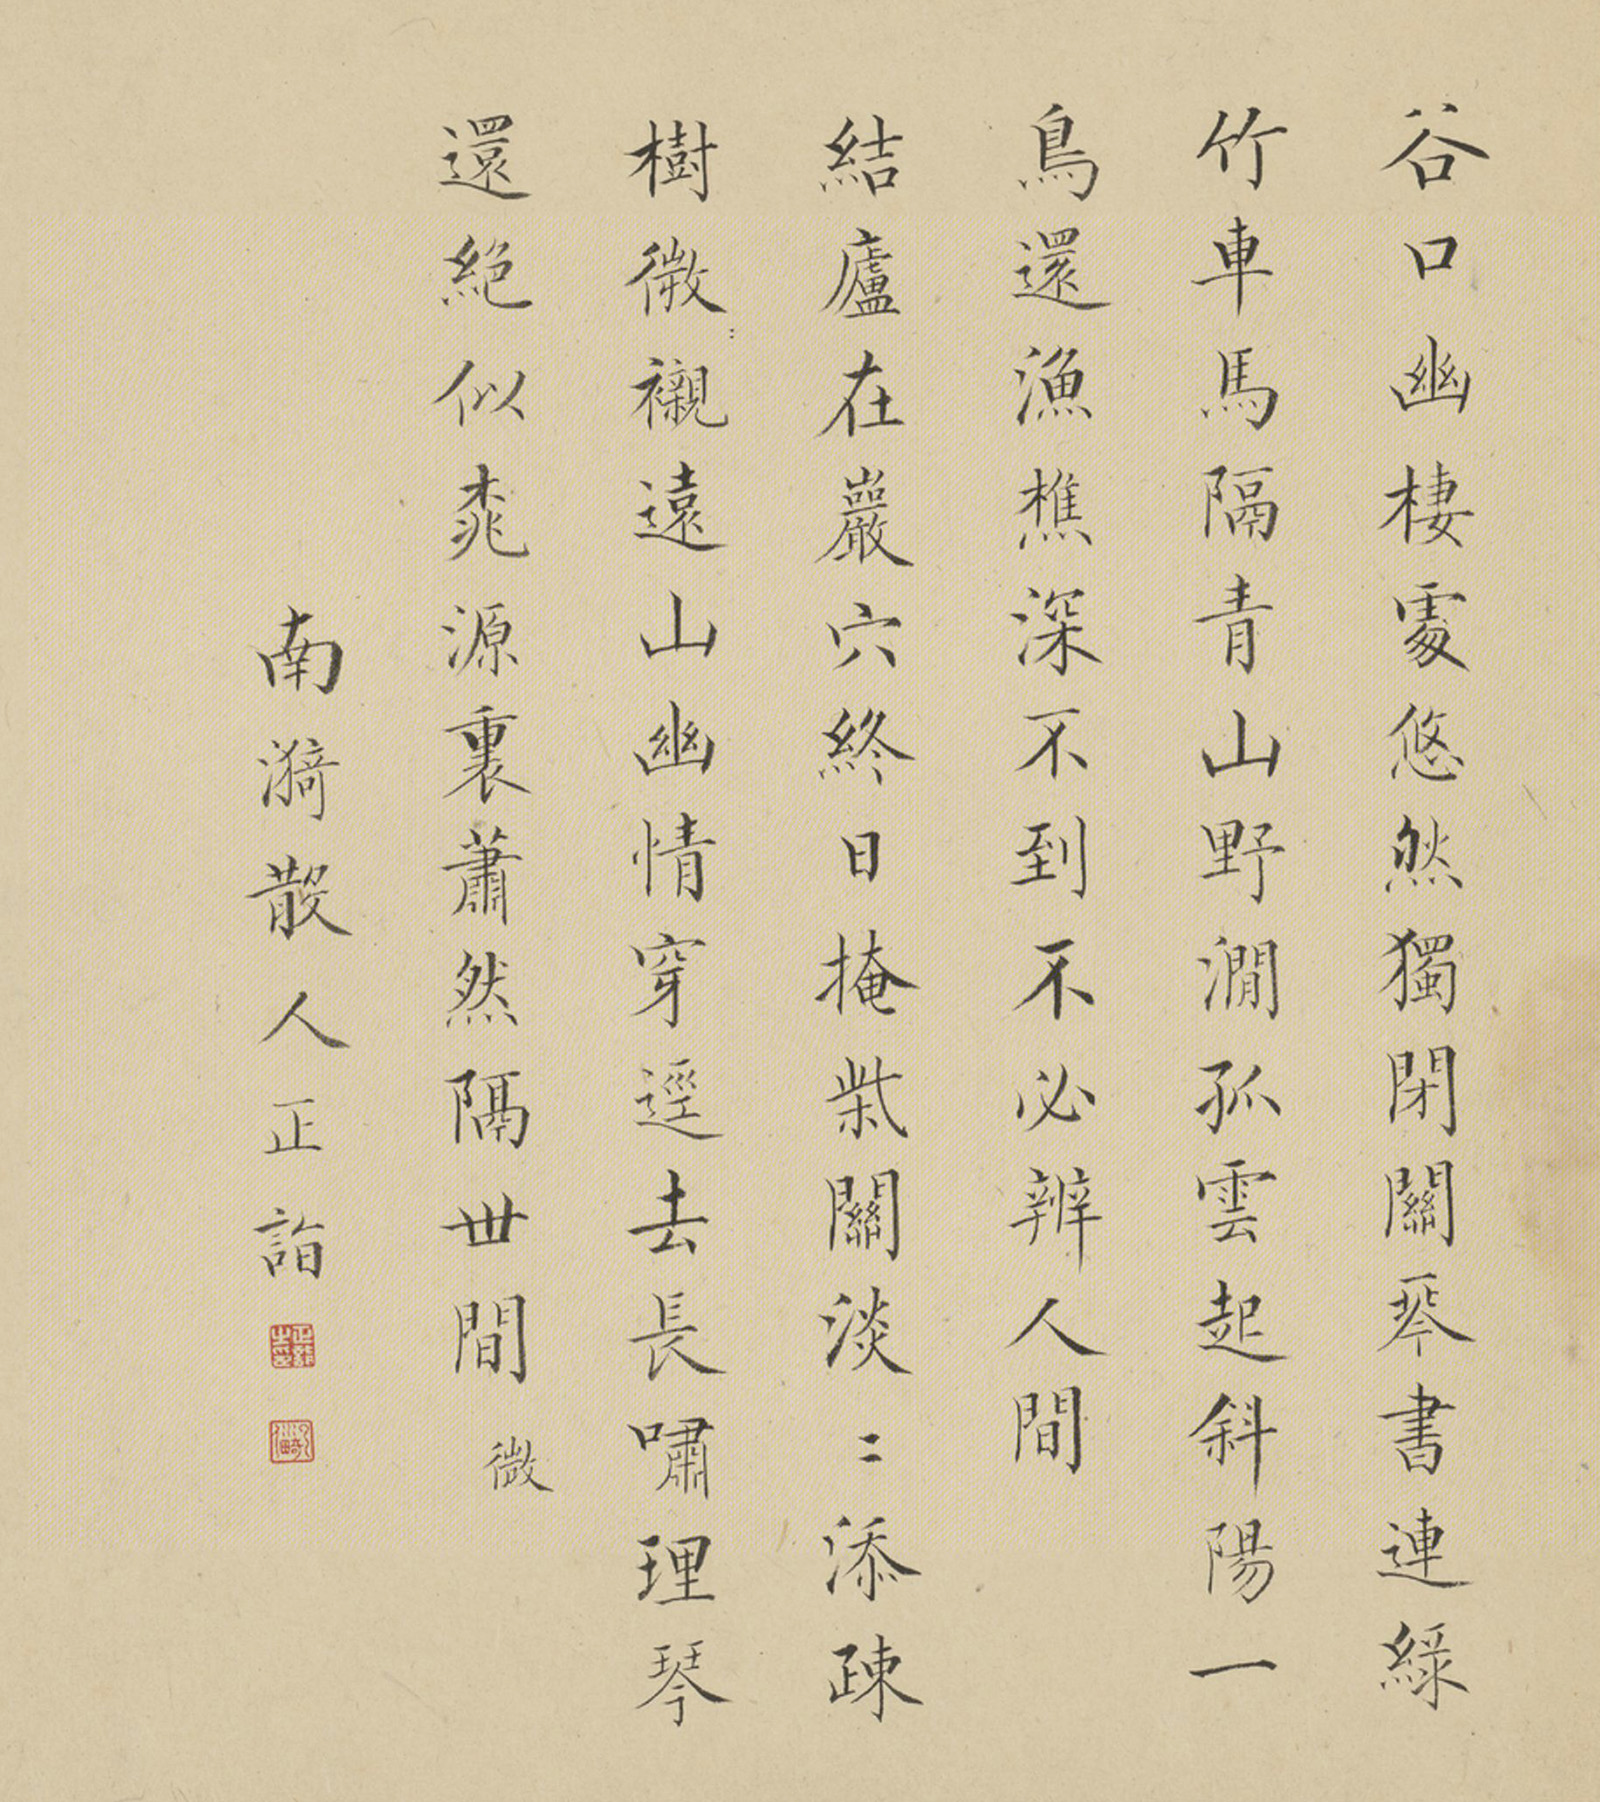 谷口幽棲處悠然獨閉關琴書連綠
竹車馬隔青山野澗孤雲起斜陽一
鳥還漁樵深不到不必辨人間
結廬在巖穴終日掩柴關淡〻添疎
樹微襯遠山幽情穿逕去長嘯理琴
還絕似桃源裏蕭然隔世間 微
南漪散人正詣